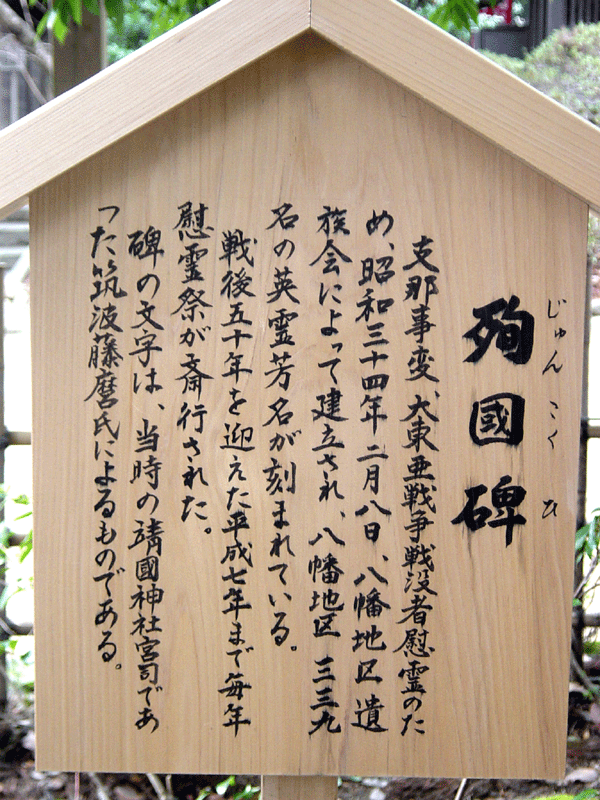 じゅんこくひ
殉國碑
支那事変、大東亜戦争戦没者慰霊のた
め、昭和三十四年二月八日、八幡地区遺
族会によって建立され、八幡地区 三三九
名の英霊芳名が刻まれている。
戦後五十年を迎えた平成七年まで毎年
慰霊祭が斎行された。
碑の文字は、当時の靖國神社宮司であ
った筑波藤麿氏によるものである。